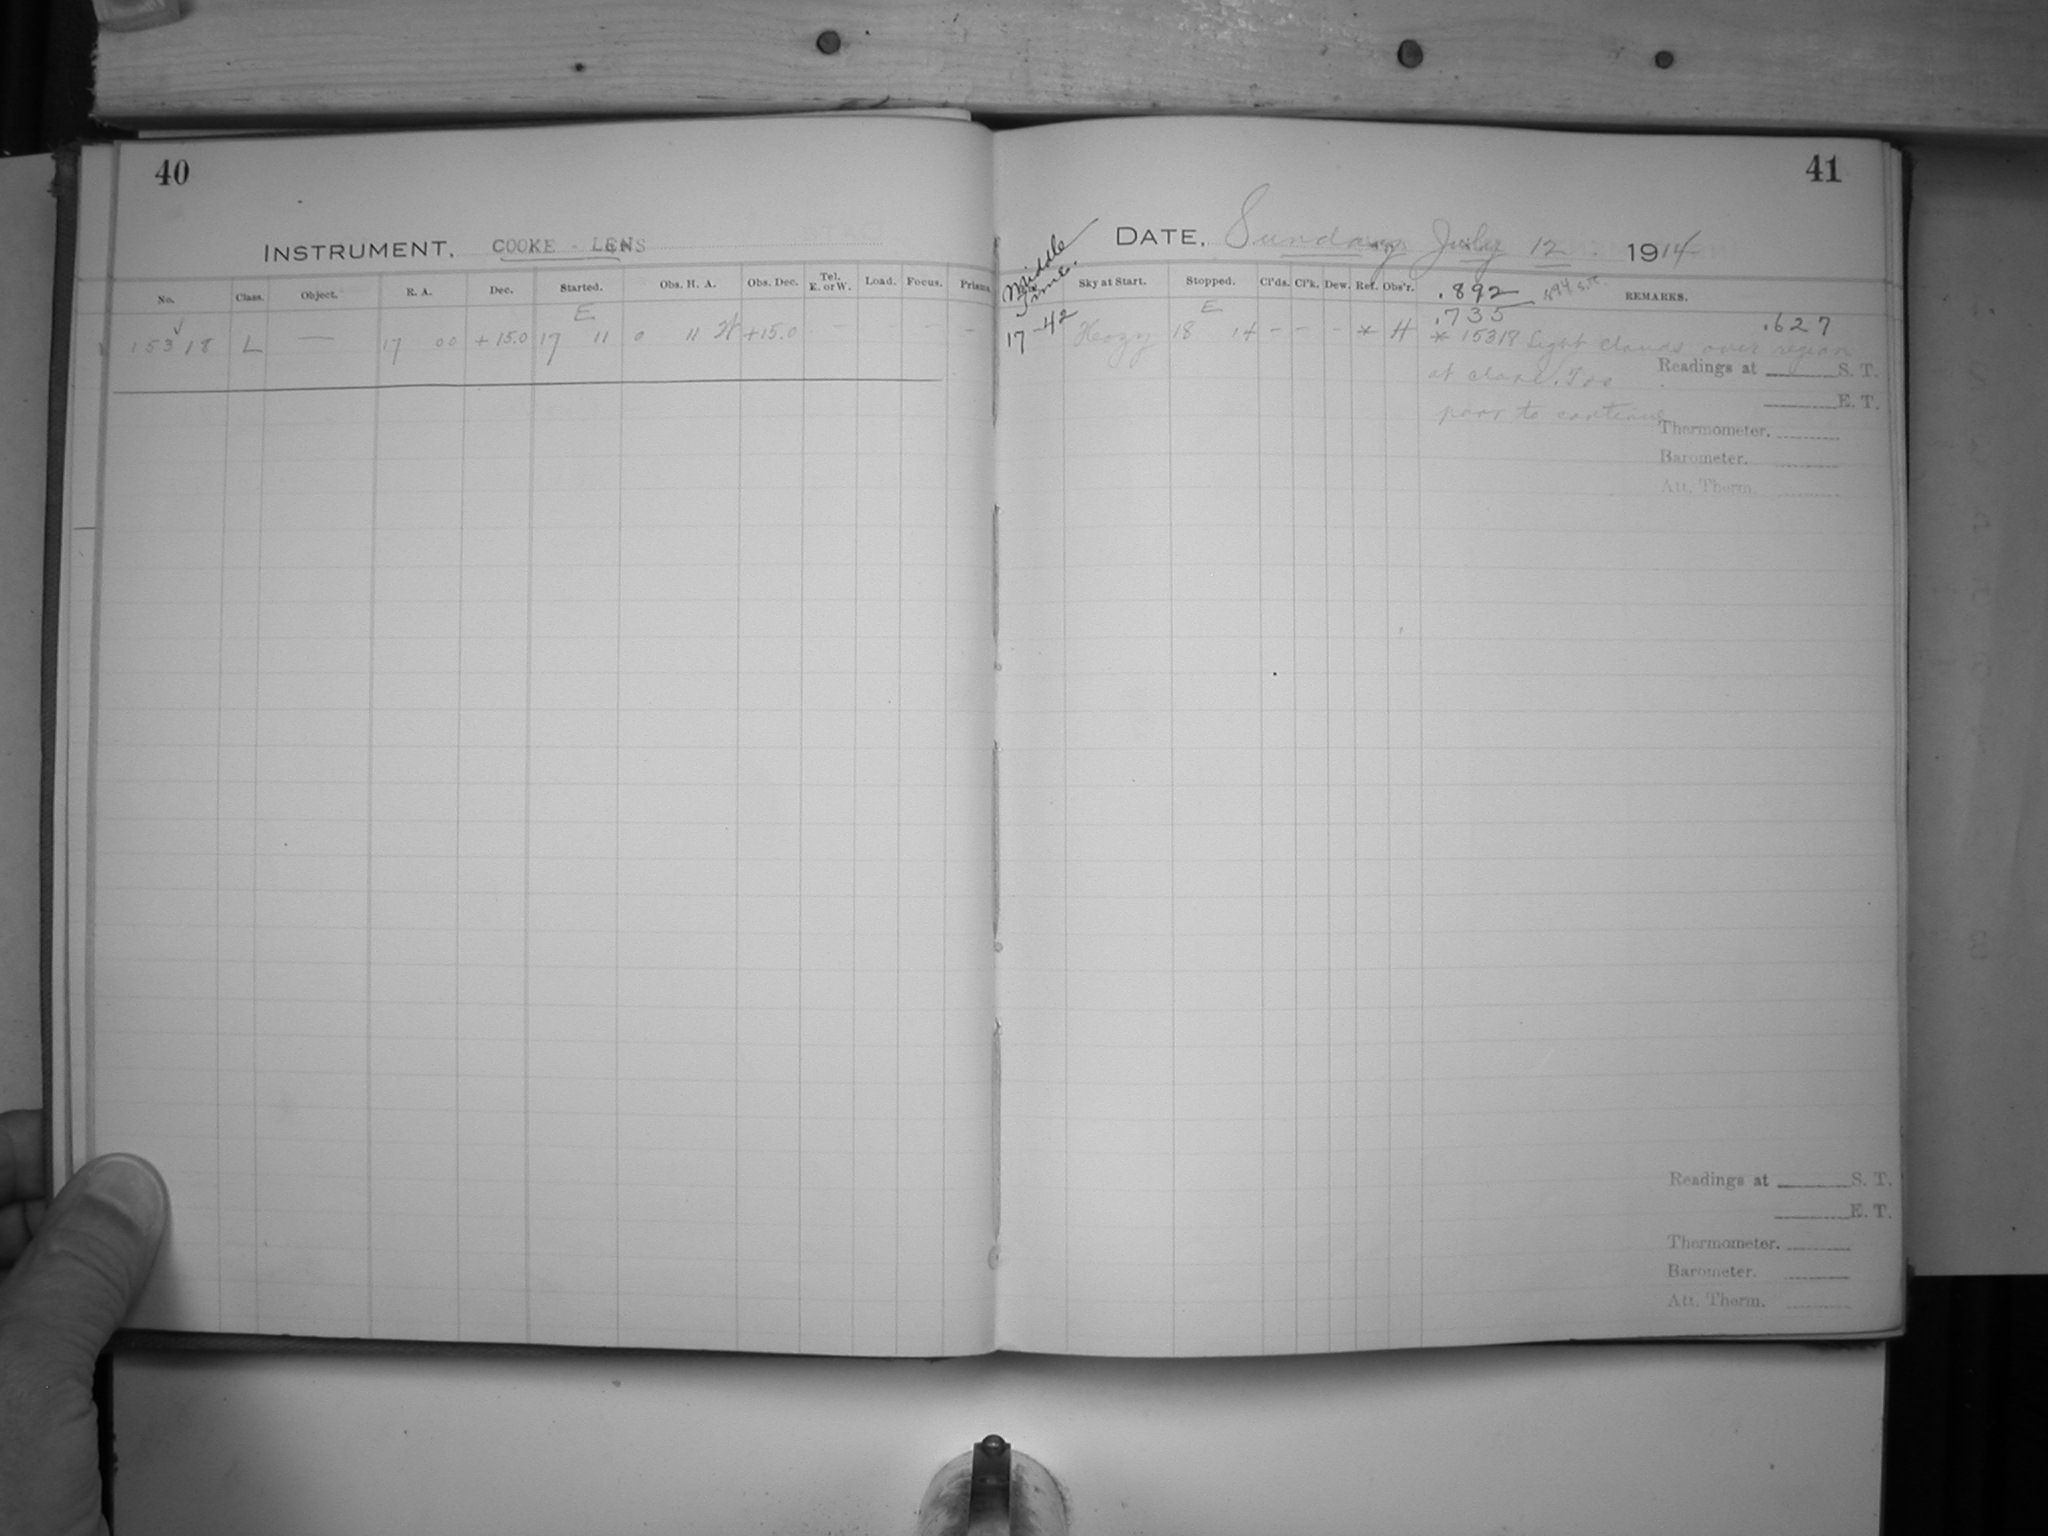 40
INSTRUMENT, COOKE - LENS
No. Class. Object. R. A. Dec. Started. Obs. H. A. Obs. Dec. Tel. E. or W. Load. Focus. Prisms
E
15318 L — 17 00 +15.0 17 11 0 11 W +15.0 - - - - -
41
DATE, Sunday July 12 1914
Middle Time.
Sky at Start. Stopped. Cl'ds. Cl'k. Dew. Ref. Obs'r. .892 REMARKS.
E .735 .627
17-42 Hazy 18 14 - - - * H * 15318 Light clouds over region
at close. Too
poor to continue
Readings at S. T.
E. T.
Thermometer.
Barometer.
Att. Therm.
Readings at S. T.
E. T.
Thermometer.
Barometer.
Att. Therm.